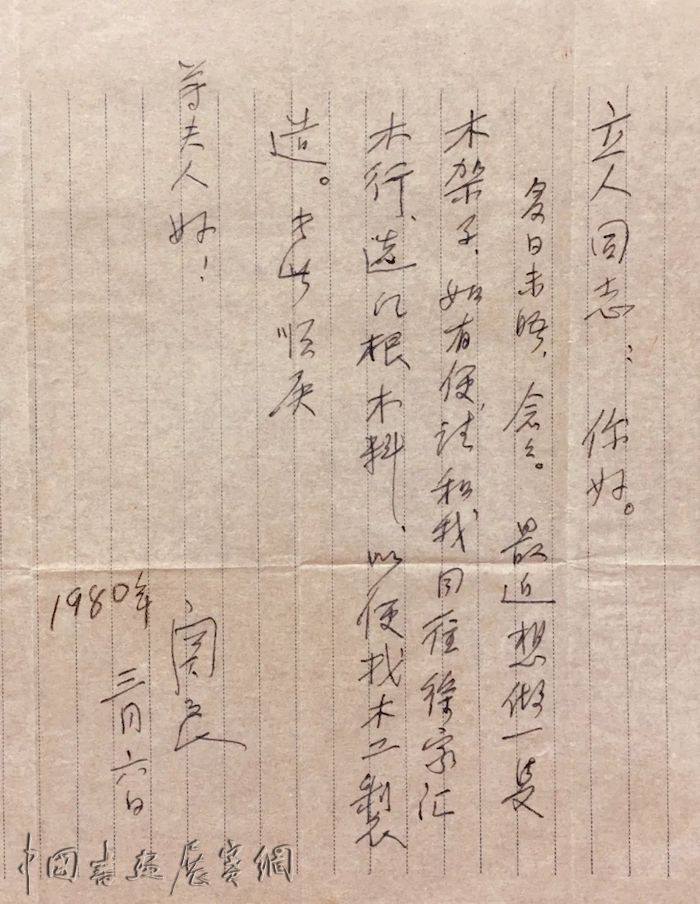 立人同志：你好。
多日未晤，念々。最近想做一隻
木架子，如有便，请和我同往徐家汇
木行，选几根木料，以便找木工製
造。专此顺及
尊夫人好！
関良
1980年
三月六日
中国书画展赛網